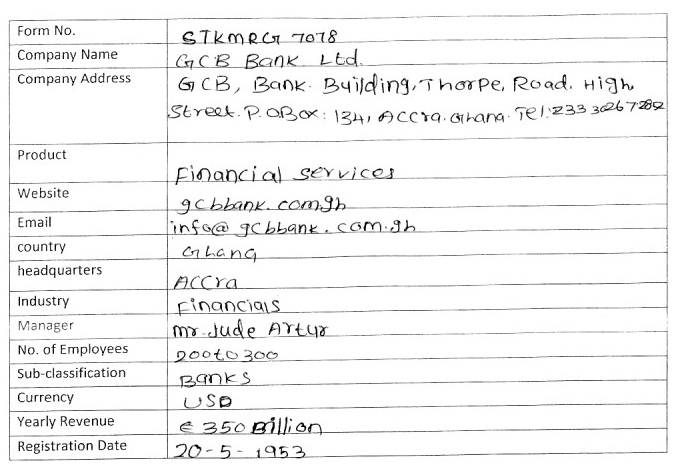 Form No. STKMRG 7078
Company Name GCB Bank Ltd.
Company Address GCB, Bank. Building, Thorpe, Road. High,
Street. P.OBox: 134, Accra. Ghana. Tel:233 30267282
Product Financial services
Website gcbbank.com.gh
Email info@gcbbank.com.gh
country Ghana
headquarters Accra
Industry Financials
Manager mr. Jude Artur
No. of Employees 200to300
Sub-classification Banks
Currency USD
Yearly Revenue € 350 Billion
Registration Date 20-5-1953